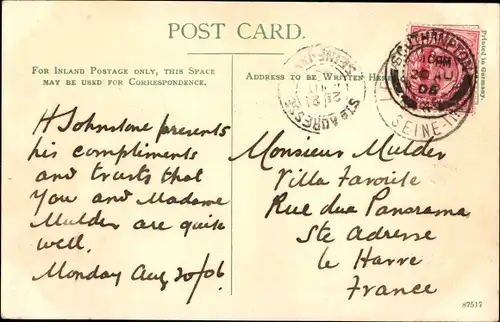 POST CARD.
FOR INLAND POSTAGE ONLY, THIS SPACE
MAY BE USED FOR CORRESPONDENCE.
ADDRESS TO BE WRITTEN HERE
Printed in Germany.
SOUTHAMPTON
06
SEINE-IN
STE ADRESSE
H Johnstone presents
his compliments
and trusts that
you and Madame
Mulder are quite
well.
Monday Aug 20/06.
Monsieur Mulder
Villa Favorite
Rue du Panorama
Ste Adresse
le Havre
France
87517